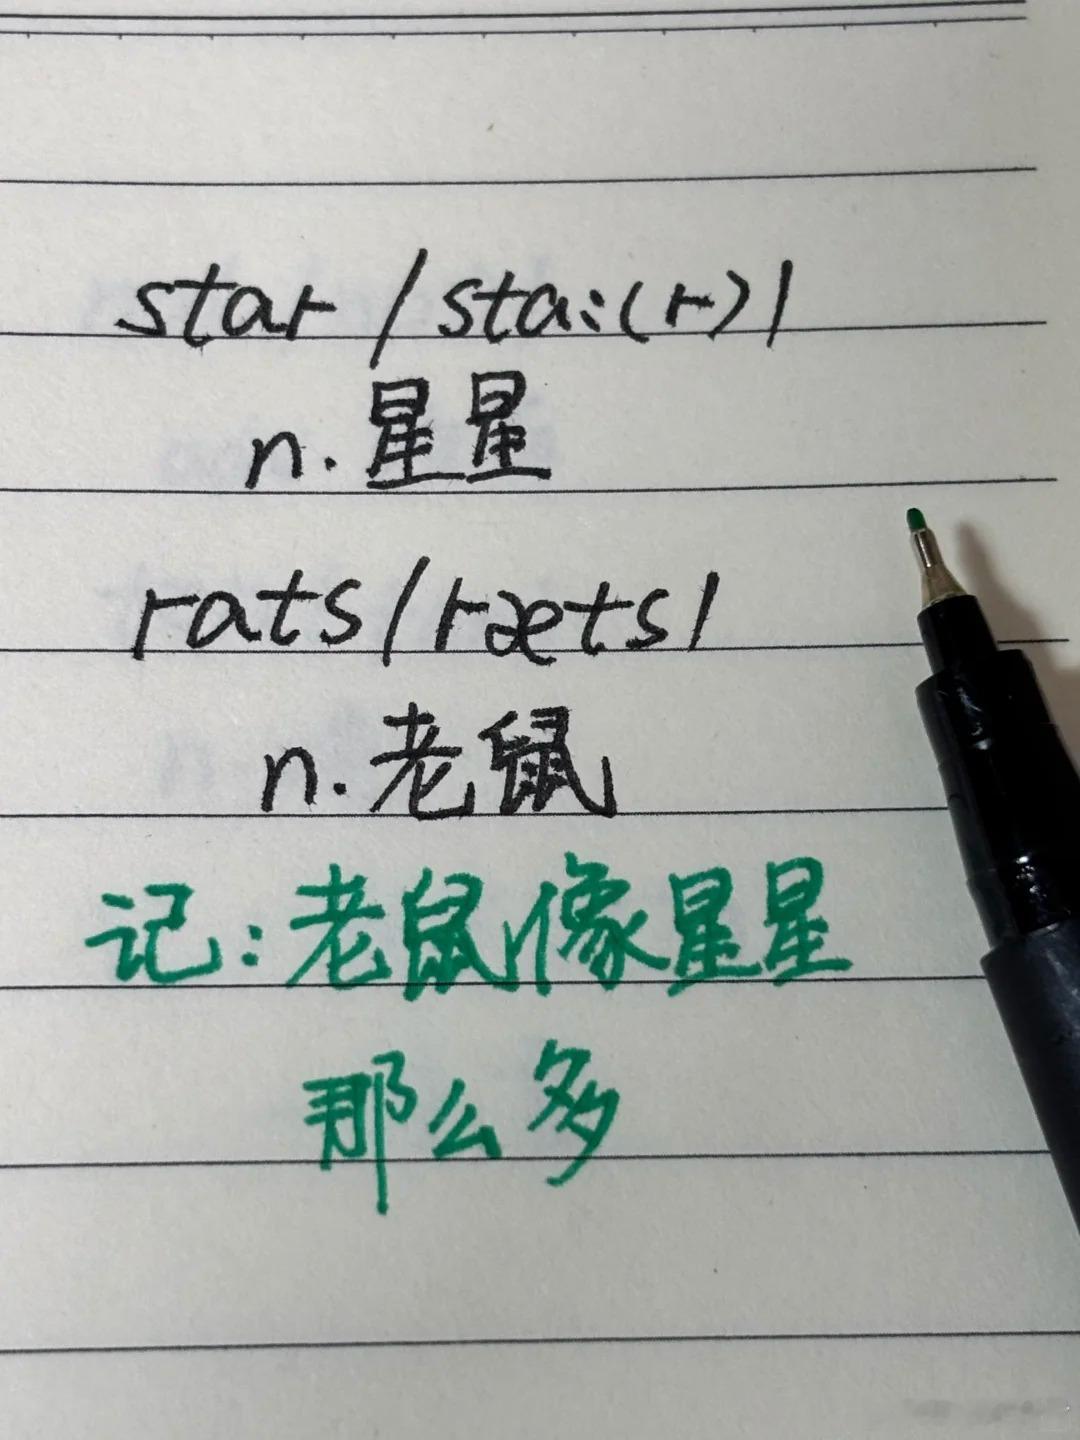 star /sta:(r)/
n. 星星
rats /ræts/
n. 老鼠
记: 老鼠像星星
那么多